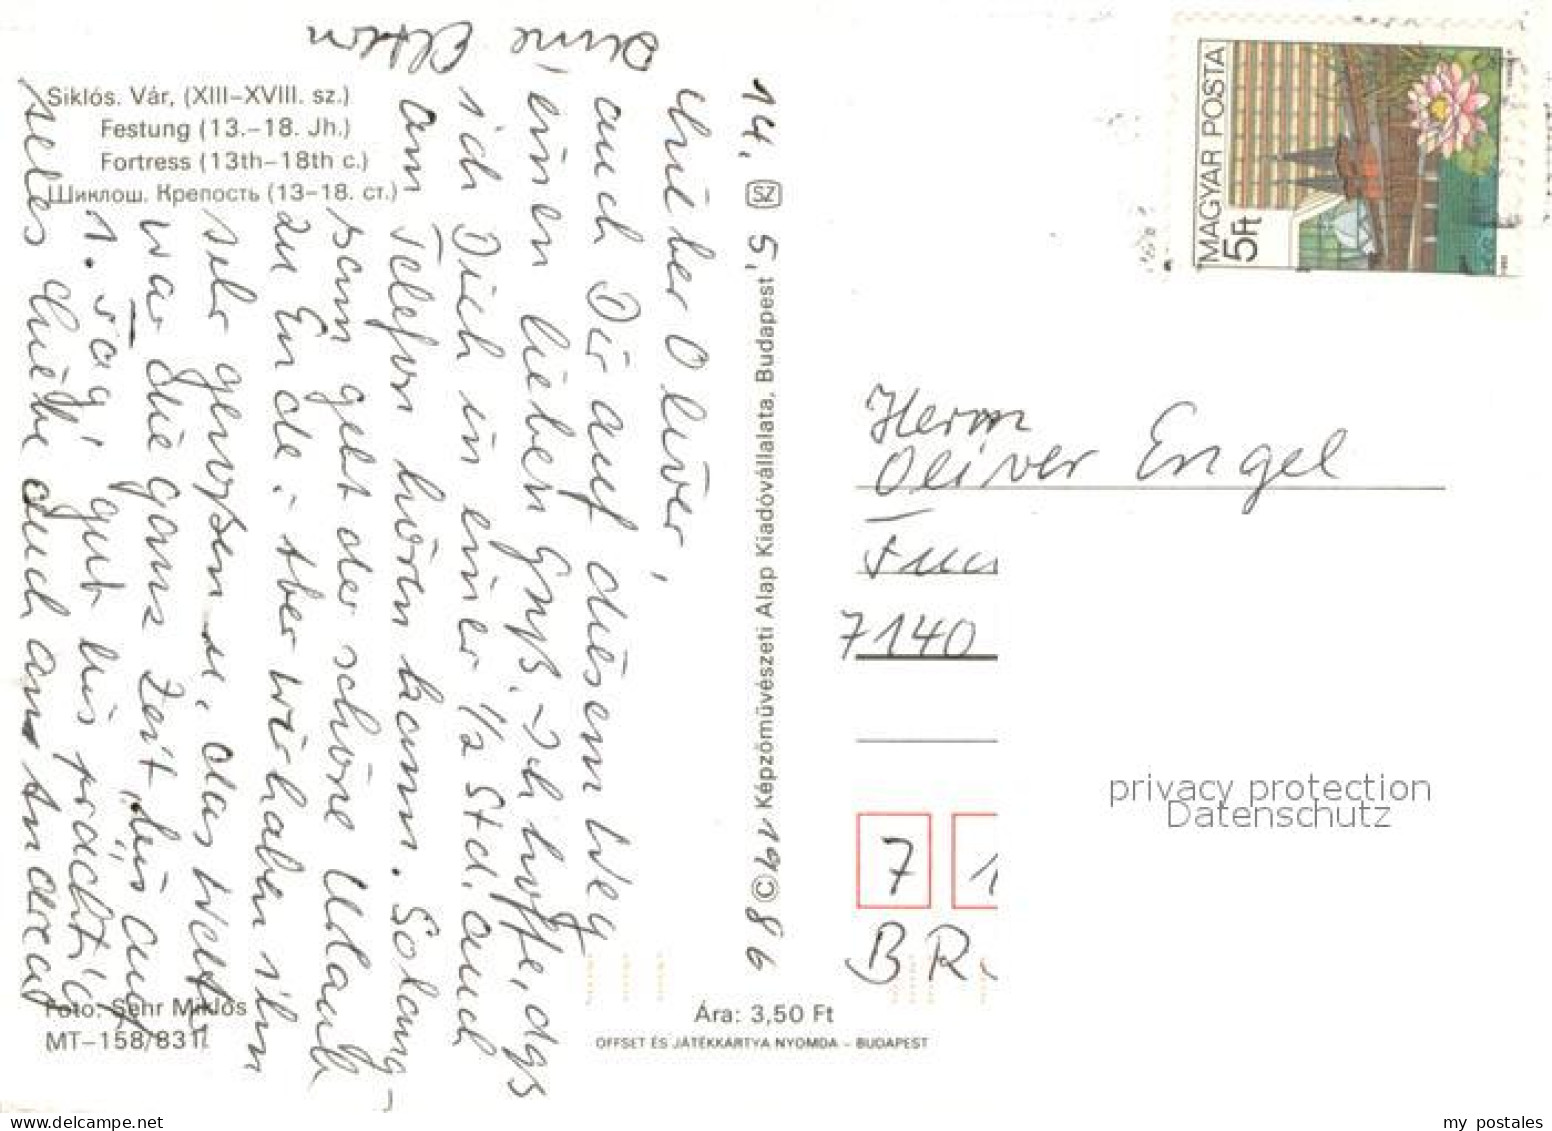 Siklós. Vár, (XIII–XVIII. sz.)
Festung (13.–18. Jh.)
Fortress (13th–18th c.)
Шиклош. Крепость (13–18. ст.)
14. 5. 1986
Lieber Oliver,
auch Dir auf diesem Weg
einen lieben Gruß. – Ich hoffe, daß
ich Dich in einer 1/2 Std. auch
am Telefon hören kann. Solang-
sam geht der schöne Urlaub
zu Ende. – Aber wir haben ihn
sehr genossen u. das Wetter
war die ganz Zeit, bis auf
1. Tag, gut bis prächtig
alles Liebe auch an Andreas
Deine Eltern
SZ
© Képzőművészeti Alap Kiadóvállalata, Budapest
Foto: Sehr Miklós
MT–158/831
Ára: 3,50 Ft
OFFSET ÉS JÁTÉKKÁRTYA NYOMDA – BUDAPEST
MAGYAR POSTA
5 Ft
Herrn
Oliver Engel
7140
7 1
BR
privacy protection
Datenschutz
my postales